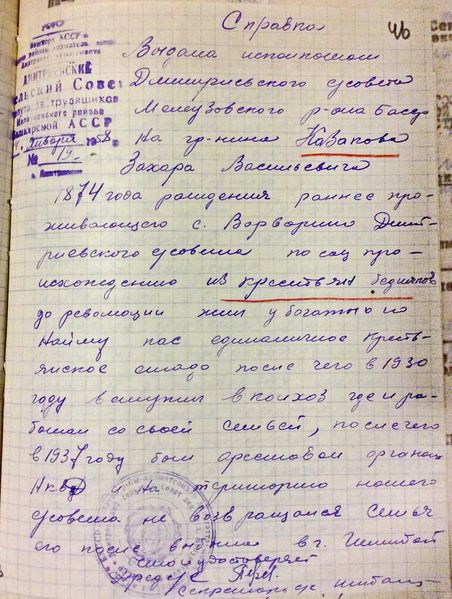 Справка
46
РСФСР
ДМИТРИЕВСКИЙ
Сельский Совет
депутатов трудящихся
Башкирской АССР
января 1958 г.
№ 19
Выдана исполкомом
Дмитриевского с/совета
Мелеузовского р-она БАССР
На гр-нина Казакова
Захара Васильевича
1874 года раждения раннее про-
живающего с. Ворварино Дмит-
риевского с/совета по соц про-
исхождению из крестьян бедняков
до революции жил у богатых по
Найму пас единаличное Кресть-
янское стадо после чего в 1930
году вступил в колхоз где и ра-
ботал со своей семьей, после чего
в 1937 году был арестован органам
НКВД и На территорию нашего
с/совета не возвращался Семья
его после выехала в г. Ишимбай